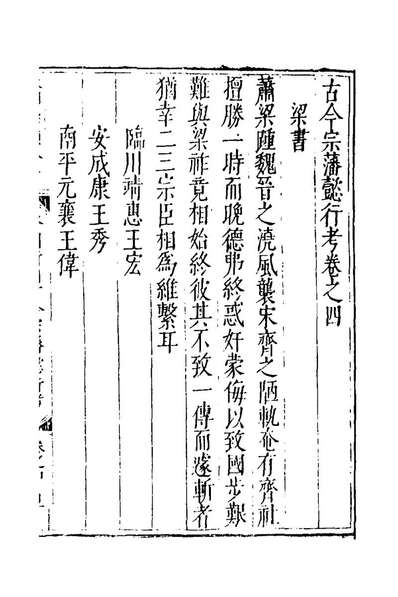 古今宗藩懿行考卷之四
梁書
蕭梁踵魏晉之澆風襲宋齊之陋軌奄有齊社
擅勝一時而晚德弗終惑奸蒙侮以致國步艱
難與梁祚竟相始終彼其不致一傳而遂斬者
猶幸二三宗臣相為維繫耳
臨川靖惠王宏
安成康王秀
南平元襄王偉